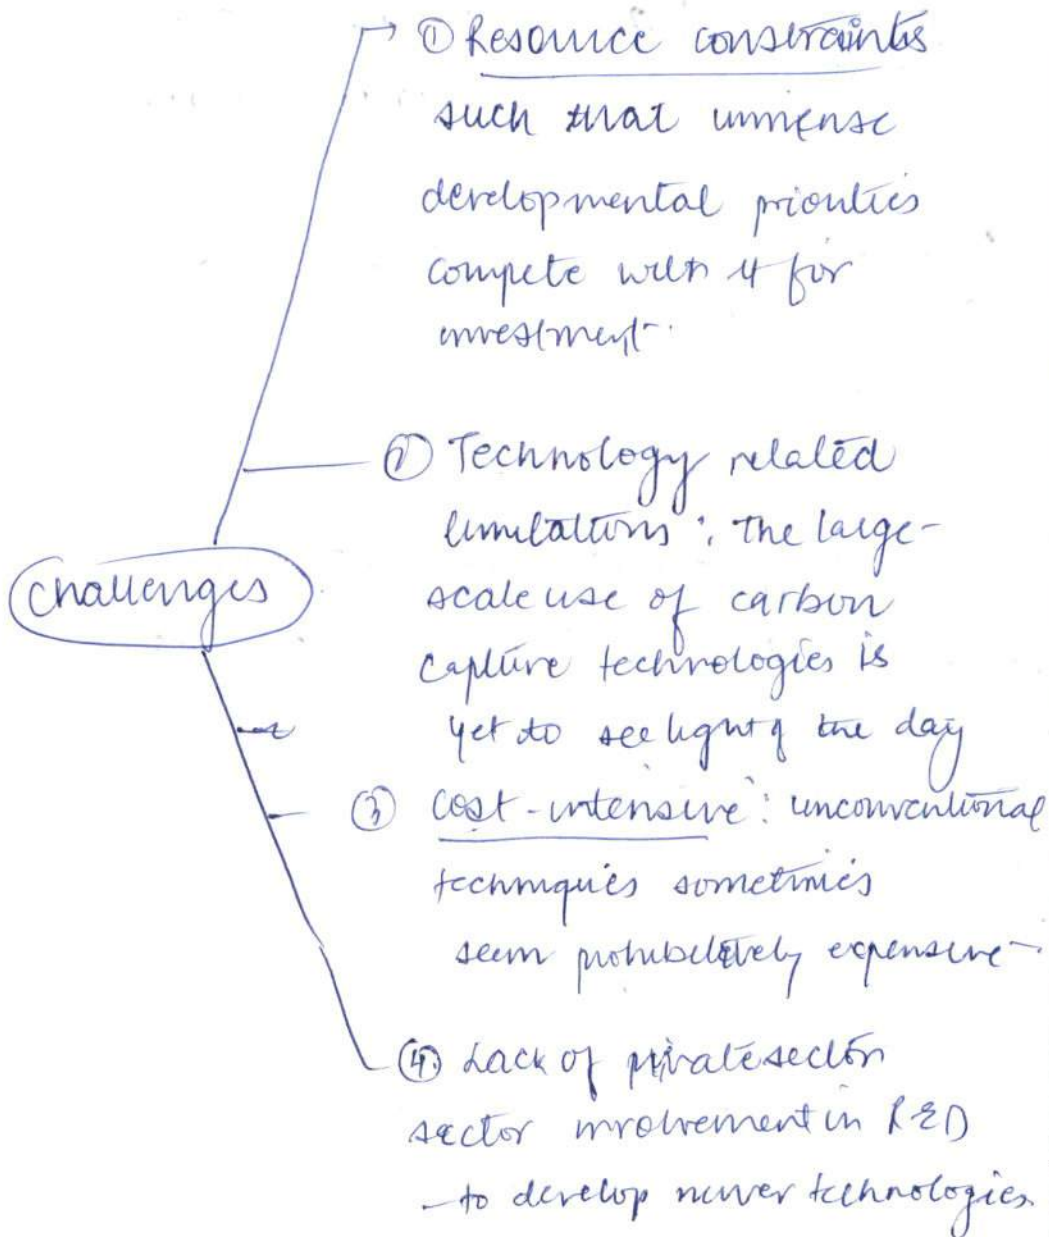 ① Resource constraints
such that immense
developmental priorities
compete with it for
investment.
② Technology related
limitations: The large-
scale use of carbon
capture technologies is
yet to see light of the day
Challenges
③ Cost-intensive: unconventional
techniques sometimes
seem prohibitively expensive
④ Lack of private sector
sector involvement in R&D
to develop newer technologies.